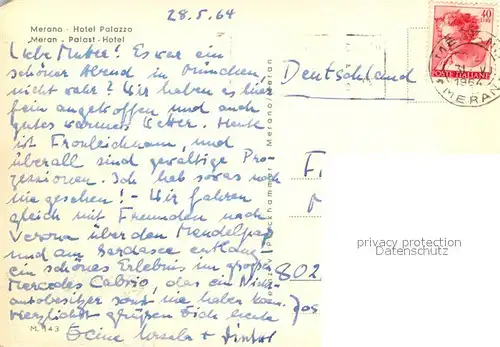 28.5.64
Merano - Hotel Palazzo
„Meran„ - Palast - Hotel
Liebe Mutter! Es war ein
schöner Abend in München,
nicht wahr? Wir haben es hier
fein angetroffen und auch
gutes warmes Wetter. Heute
ist Fronleichnam, und
überall sind gewaltige Pro-
zessionen. Ich hab sowas noch
nie gesehen! - Wir fahren
gleich mit Freunden nach
Verona über den Mendelpaß
und am Gardasee entlang
ein schönes Erlebnis im großen
Mercedes Cabrio, das ein Nicht-
autobesitzer sonst nie haben kann.
Herzlichst grüßen Dich heute
Deine Ursula +
M. 143
40
LIRE
POSTE ITALIANE
1964
MERAN
Deutschland
802
privacy protection
DS Samlermarked